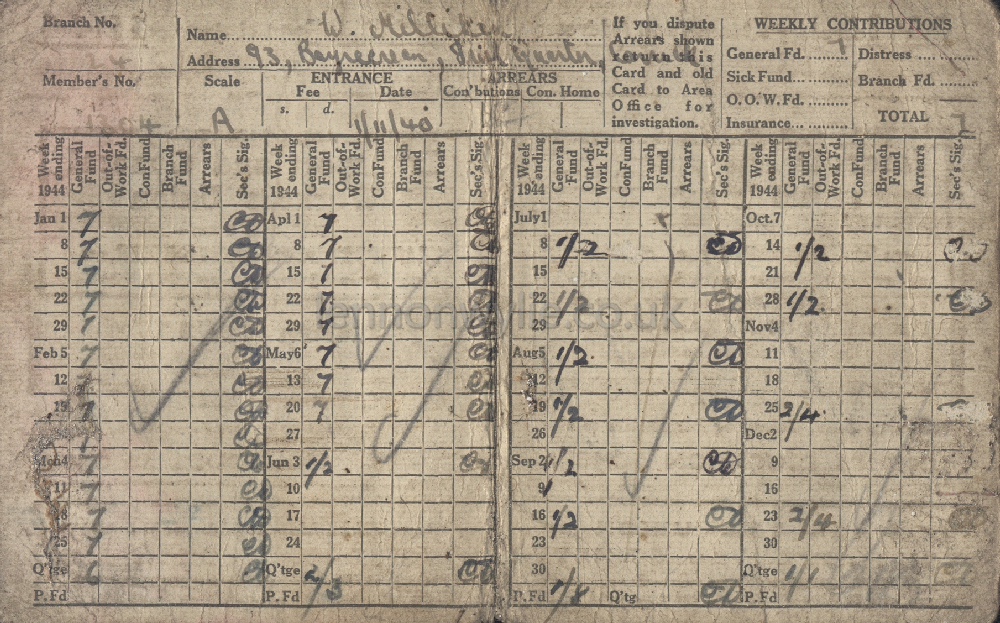 Branch No.
Name W. Milliken
Address 93,
Member's No.
Scale A
ENTRANCE
Fee Date
s. d.
1/11/40
ARREARS
Con'butions Con. Home
If you dispute
Arrears shown
return this
Card and old
Card to Area
Office for
investigation.
WEEKLY CONTRIBUTIONS
General Fd. 7 Distress
Sick Fund Branch Fd.
O. O. W. Fd.
Insurance TOTAL 7
Week ending 1944 General Fund Out-of-Work Fd. Con Fund Branch Fund Arrears Sec's Sig.
Jan 1 7
8 7
15 7
22 7
29 7
Feb 5 7
12 7
19 7
7
Mch 4 7
11 7
18 7
25 7
Q'tge 6
P. Fd
Week ending 1944 General Fund Out-of-Work Fd. Con Fund Branch Fund Arrears Sec's Sig.
Apl 1 7
8 7
15 7
22 7
29 7
May 6 7
13 7
20 7
27
Jun 3 1/2
10
17
24
Q'tge 2/3
P. Fd
Week ending 1944 General Fund Out-of-Work Fd. Con Fund Branch Fund Arrears Sec's Sig.
July 1
8 1/2
15
22 1/2
29
Aug 5 1/2
12
19 1/2
26
Sep 2 1/2
9
16 1/2
23
30
P. Fd 1/8 Q'tg
Week ending 1944 General Fund Out-of-Work Fd. Con Fund Branch Fund Arrears Sec's Sig.
Oct. 7
14 1/2
21
28 1/2
Nov 4
11
18
25 2/4
Dec 2
9
16
23 2/4
30
Q'tge 1/1
P. Fd